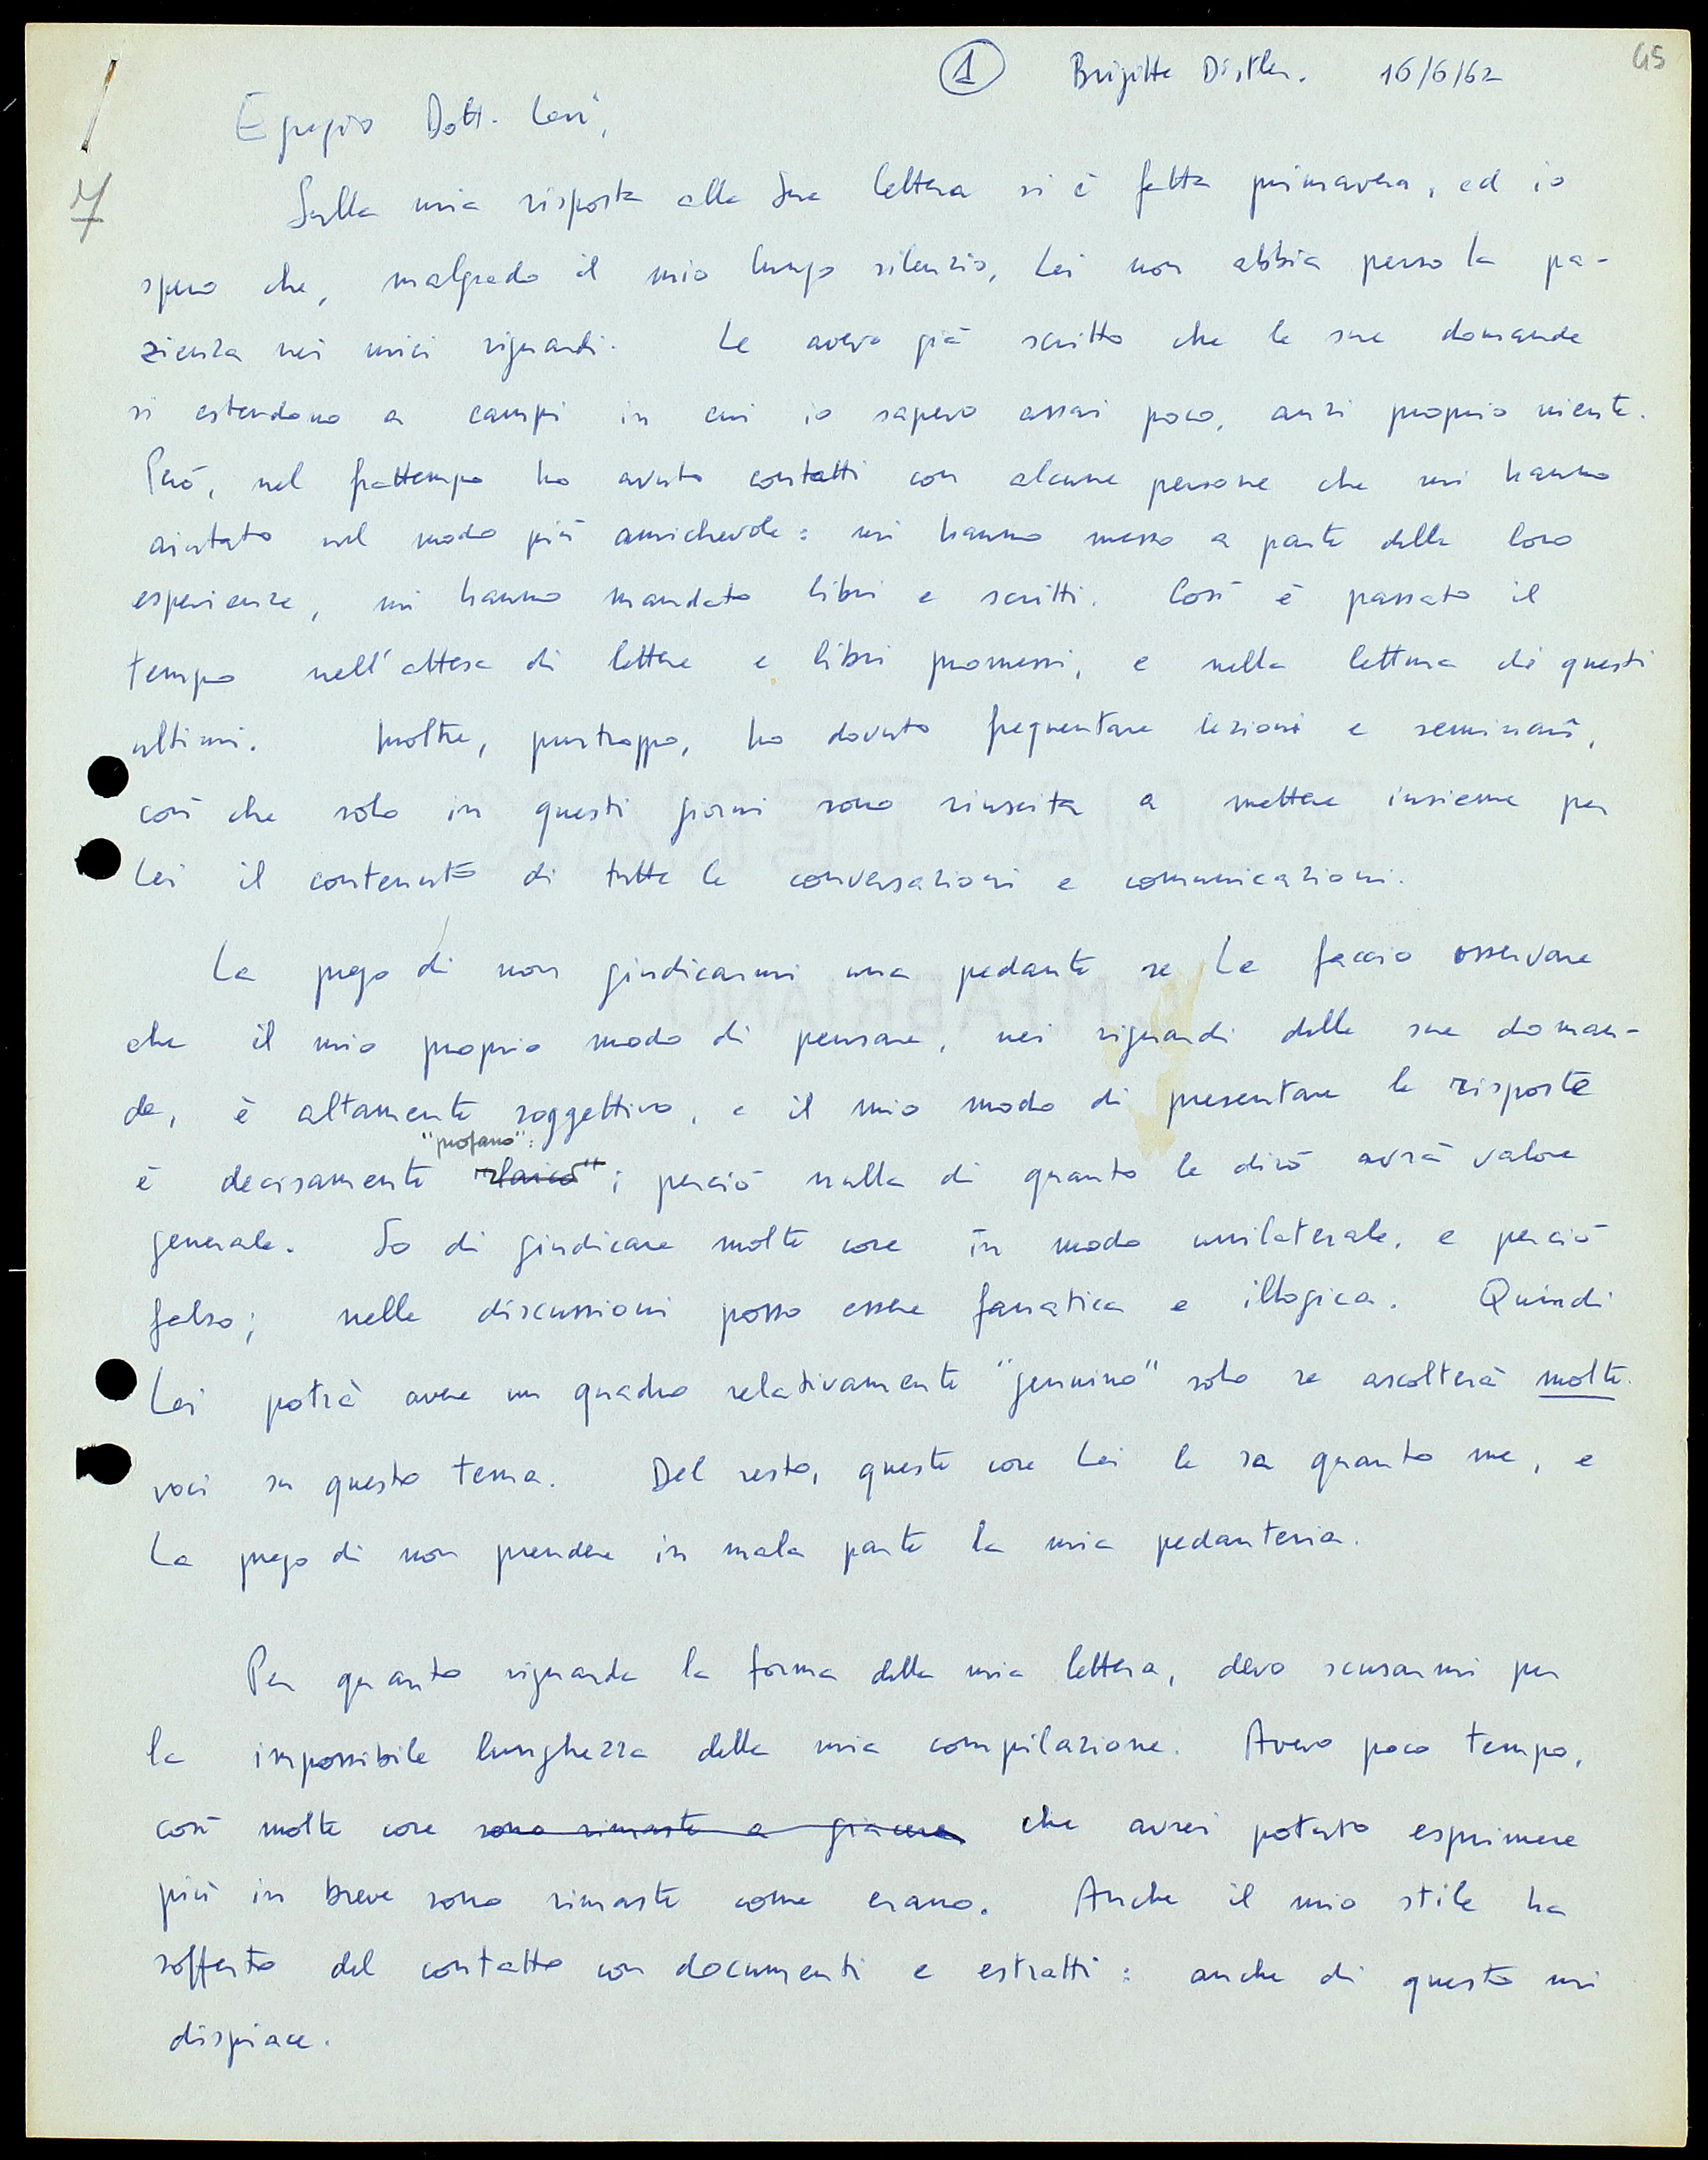 ① Brigitte Distler. 16/6/62 45
Egregio Dott. Levi,
7
Sulla mia risposta alla Sua lettera si è fatta primavera, ed io
spero che, malgrado il mio lungo silenzio, Lei non abbia perso la pa-
zienza nei miei riguardi. Le avevo già scritto che le sue domande
si estendono a campi in cui io sapevo assai poco, anzi proprio niente.
Però, nel frattempo ho avuto contatti con alcune persone che mi hanno
aiutato nel modo più amichevole: mi hanno messo a parte delle loro
esperienze, mi hanno mandato libri e scritti. Così è passato il
tempo nell'attesa di lettere e libri promessi, e nella lettura di questi
ultimi. Inoltre, purtroppo, ho dovuto frequentare lezioni e seminari,
così che solo in questi giorni sono riuscita a mettere insieme per
Lei il contenuto di tutte le conversazioni e comunicazioni.
La prego di non giudicarmi una pedante se Le faccio osservare
che il mio proprio modo di pensare, nei riguardi delle sue doman-
de, è altamente soggettivo, e il mio modo di presentare le risposte
"profano":
è decisamente "laico"; perciò nulla di quanto le dirò avrà valore
generale. So di giudicare molte cose in modo unilaterale, e perciò
falso; nelle discussioni posso essere fanatica e illogica. Quindi
Lei potrà avere un quadro relativamente "genuino" solo se ascolterà molte
voci su questo tema. Del resto, queste cose Lei le sa quanto me, e
La prego di non prendere in mala parte la mia pedanteria.
Per quanto riguarda la forma della mia lettera, devo scusarmi per
la impossibile lunghezza della mia compilazione. Avevo poco tempo,
così molte cose sono rimaste a giacere che avrei potuto esprimere
più in breve sono rimaste come erano. Anche il mio stile ha
sofferto del contatto con documenti e estratti: anche di questo mi
dispiace.